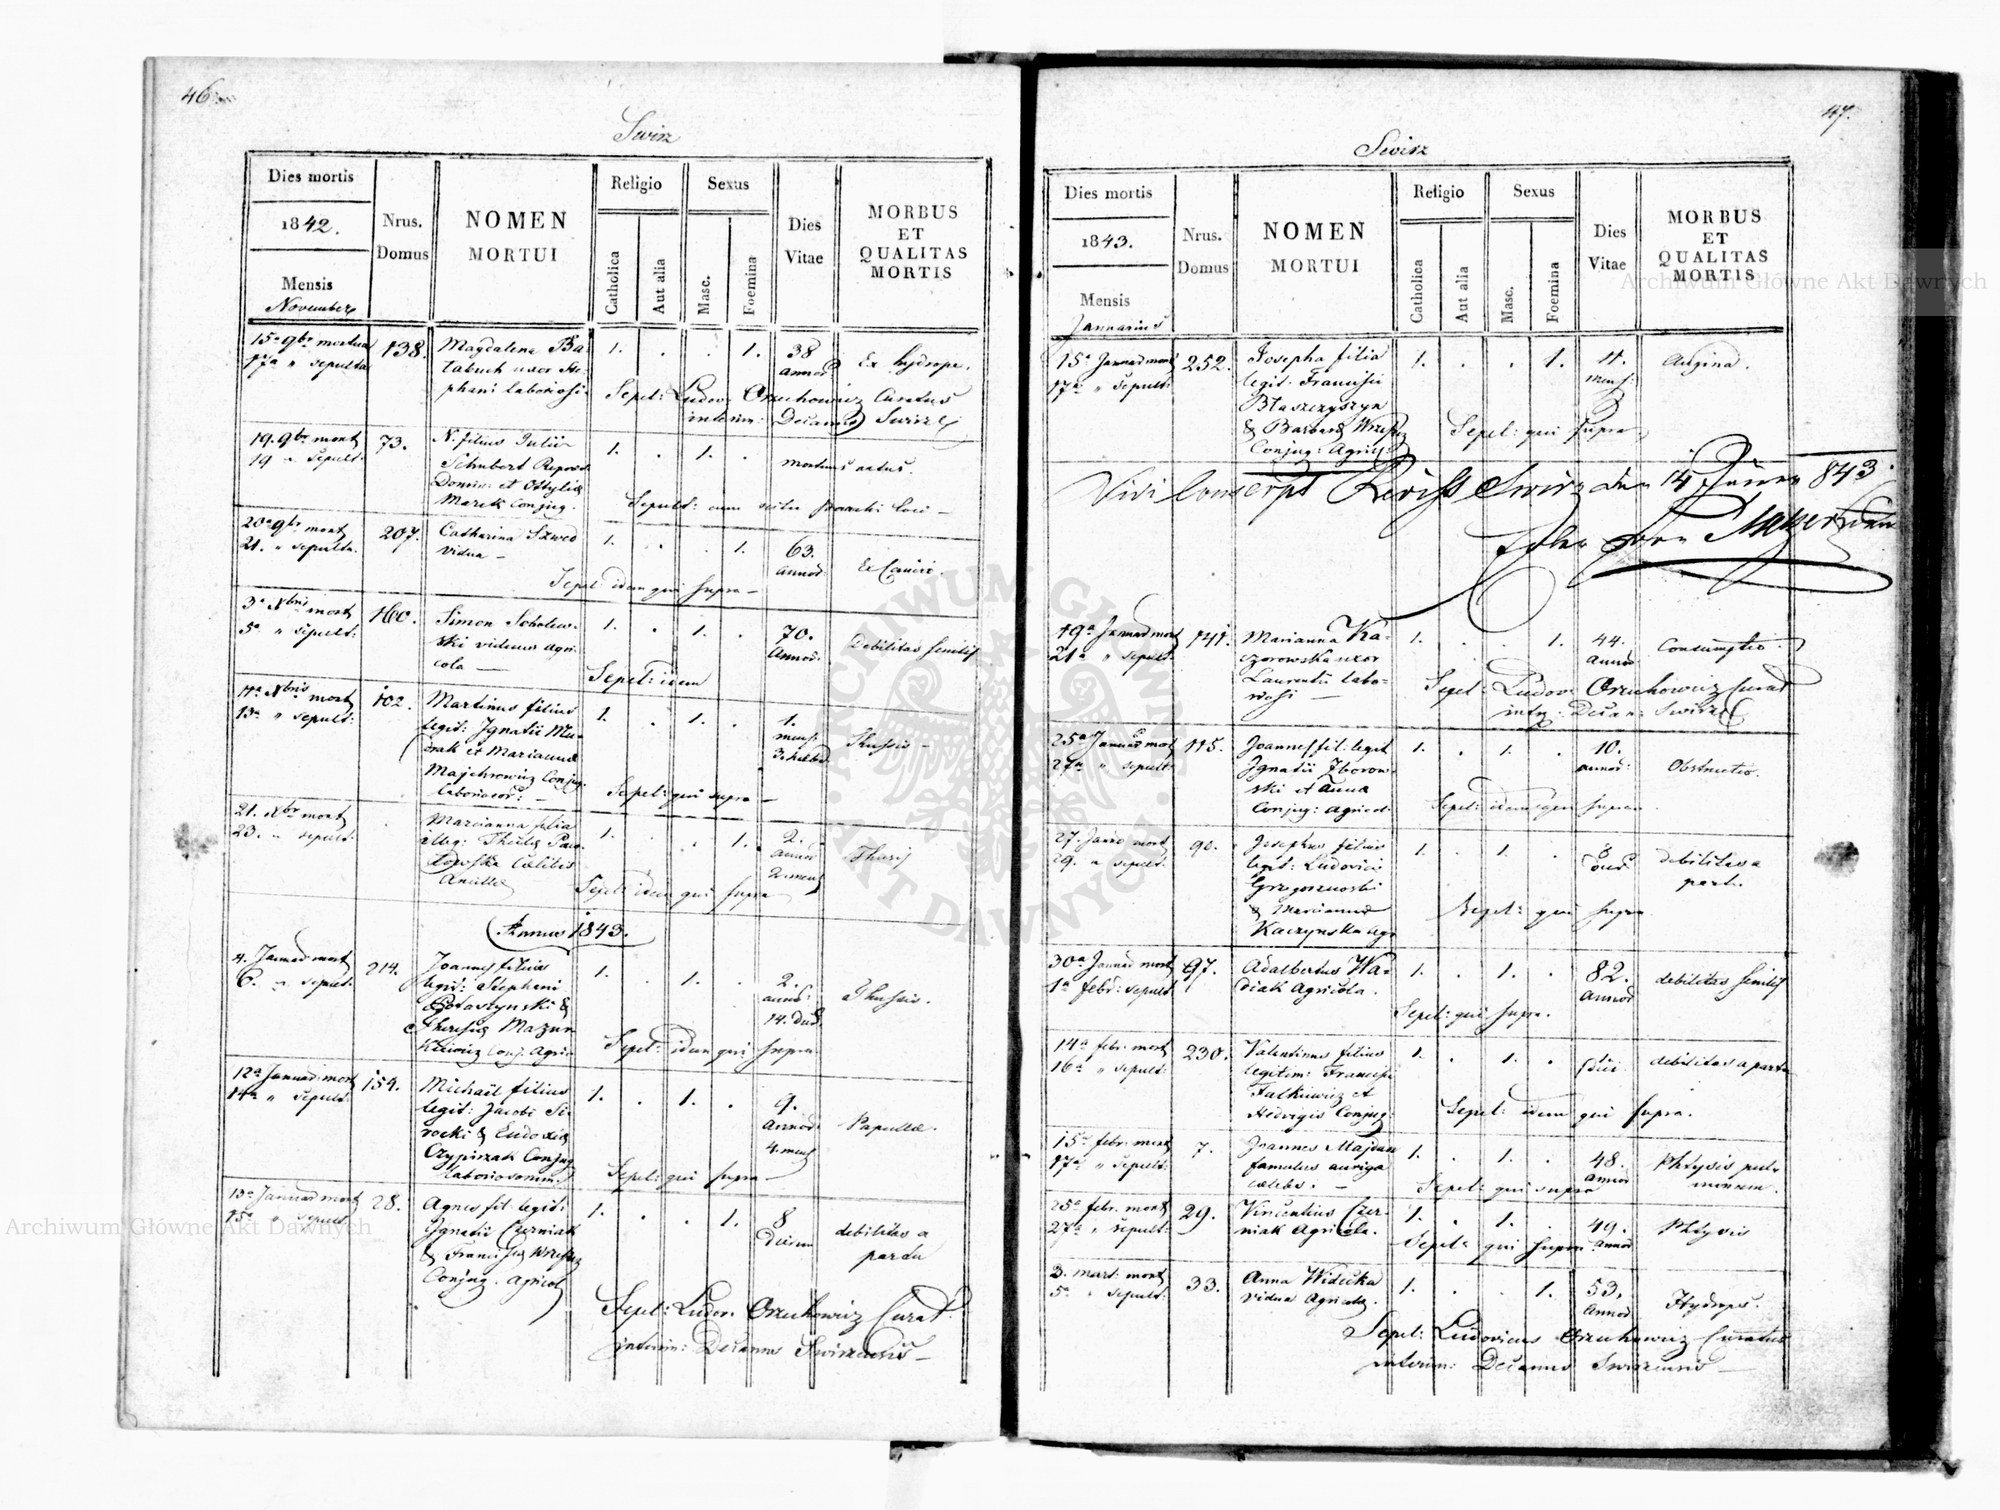 46
Swirz
Dies mortis
1842.
Mensis
November
Nrus.
Domus
NOMEN
MORTUI
Religio
Catholica
Aut alia
Sexus
Masc.
Foemina
Dies
Vitae
MORBUS
ET
QUALITAS
MORTIS
15a 9br mortua
17a " sepulta
138.
Magdalena Ba-
tabuch uxor Ste-
phani laboriosi
1. . . 1.
38
annor:
Ex hydrope.
Sepel: Ludov: Orzuchowicz Curatus
interim: Decanus Swirze
19. 9br mort
19 " Sepult:
73.
N. filius Julii
Schubert
Domin: et Ottylia
Marek Conjug.
1. . 1. .
mortuus natus.
Sepult: cum scitu Parochi loci –
20a 9br mort
21. " sepulta.
207.
Catharina Szwed
vidua –
1. . . 1.
63.
annor:
Sepel: idem qui supra –
3a Xbris mort
5a " sepult:
160.
Simon Scholew-
ski viduus agri-
cola –
1. . 1. .
70.
Annor.
Debilitas senilis
Sepel: idem
11a Xbris mort
13a " sepult:
102.
Martinus filius
legit: Ignatii
et Marianna
Majchrowicz Conjug:
laborios: –
1. . 1. .
1.
mens:
Thussis –
Sepel: qui supra –
21. Xbr mort
23. " sepult:
Marianna filia
illeg: Theclae Paw-
łowska Caelibis
Ancillae
1. . . 1.
2.
annor
2. mens
Thussis
Sepel: idem qui supra
Annus 1843.
4. Januar mort
6. " sepult:
214.
Joannes filius
legit: Stephani
&
Theresiae Mazur
Conj: Agri:
1. . 1. .
2.
annor:
14. dier:
Thussis.
Sepel: idem qui supra
12a Januar: mort
14a " sepult:
154.
Michael filius
legit: Jacobi Si-
rocki & Eudoxia
Czypirzak Conjug
Laboriosorum.
1. . 1. .
9.
annor:
4. mens
Papullae.
Sepel: qui supra –
13a Januar mort
15a " sepult
28.
Agnes fil: legit:
Ignatii Czerniak
& Francisca
Conjug. Agricol
1. . . 1.
8
Dierum
debilitas a
partu
Sepel: Ludov. Orzuchowicz Curat.
interim: Decanus Swirzensis –
47.
Swirz
Dies mortis
1843.
Mensis
Januarius
Nrus.
Domus
NOMEN
MORTUI
Religio
Catholica
Aut alia
Sexus
Masc.
Foemina
Dies
Vitae
MORBUS
ET
QUALITAS
MORTIS
15a Januar mort
17a " Sepult:
252.
Josepha filia
legit: Francisci
Błaszczyszyn
& Barbara
Conjug: Agric:
1. . . 1.
11.
mens:
Angina.
Sepel: qui supra
Vidi Swirz den 14 843
19a Januar mort
21a " sepult:
141.
Marianna Ka-
czorowska uxor
Laurentii labo-
riosi –
1. . . 1.
44.
annor
Consumptio.
Sepel: Ludov: Orzuchowicz Curat
inter: Decan: Swirze
25a Januar mort
27a " sepult:
115.
Joannes fil: legit
Ignatii Zborow-
ski et Anna
Conjug: agricol:
1. . 1. .
10.
annor:
Obstructio.
Sepel: idem qui supra.
27. Janr mort
29. " sepult:
90.
Josephus filius
legit: Ludovici
& Marianna
Kaczynska agr
1. . 1. .
8
debilitas a
partu.
Sepel: qui supra
30a Januar mort
1a febr: sepult
97.
Adalbertus Wa-
diak Agricola.
1. . 1. .
82.
Annor
debilitas senilis
Sepel: qui supra.
14a febr. mort
16a " sepult:
230.
Valentinus filius
legitim: Francisci
Falkiewicz et
Hedvigis Conjug:
1. . 1. .
1.
diei
debilitas a partu
Sepel: idem qui supra.
15a febr. mort
17a " sepult:
7.
Joannes Majdan
famulus auriga
caelebs. –
1. . 1. .
48.
Annor
Phtysis pul-
monum.
Sepel: qui supra
25a febr. mort
27a " sepult:
29.
Vincentius Czer-
niak Agricola.
1. . 1. .
49.
Annor
Phtysis
Sepel: qui supra
3. mart: mort
5a " sepult:
33.
Anna Widecka
vidua Agricola.
1. . . 1.
53.
Annor
Hydrops.
Sepel: Ludovicus Orzuchowicz Curatus
interim: Decanus Swirzensis –
Archiwum Główne Akt Dawnych
Archiwum Główne Akt Dawnych
ARCHIWUM GŁÓWNE
AKT DAWNYCH